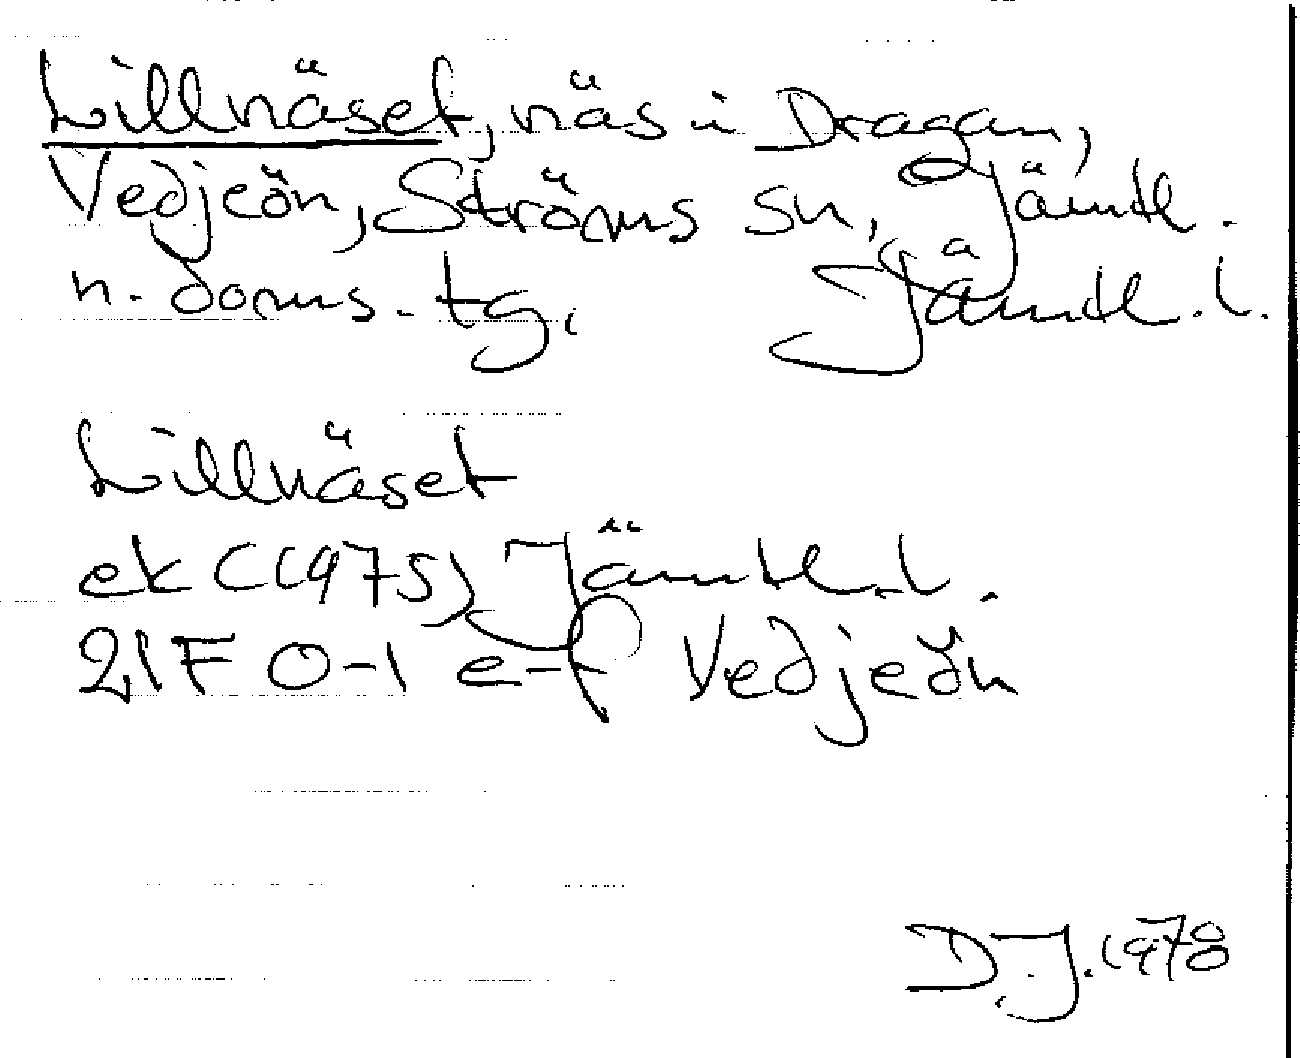 Lillnäset, näs i Dragan,
Vedjeön, Ströms sn, Jämtl.
n. doms. tg. Jämtl. l.
Lillnäset
ek (1975) Jämtl. l.
21F 0-1 e-f Vedjeön
D.J. 1978